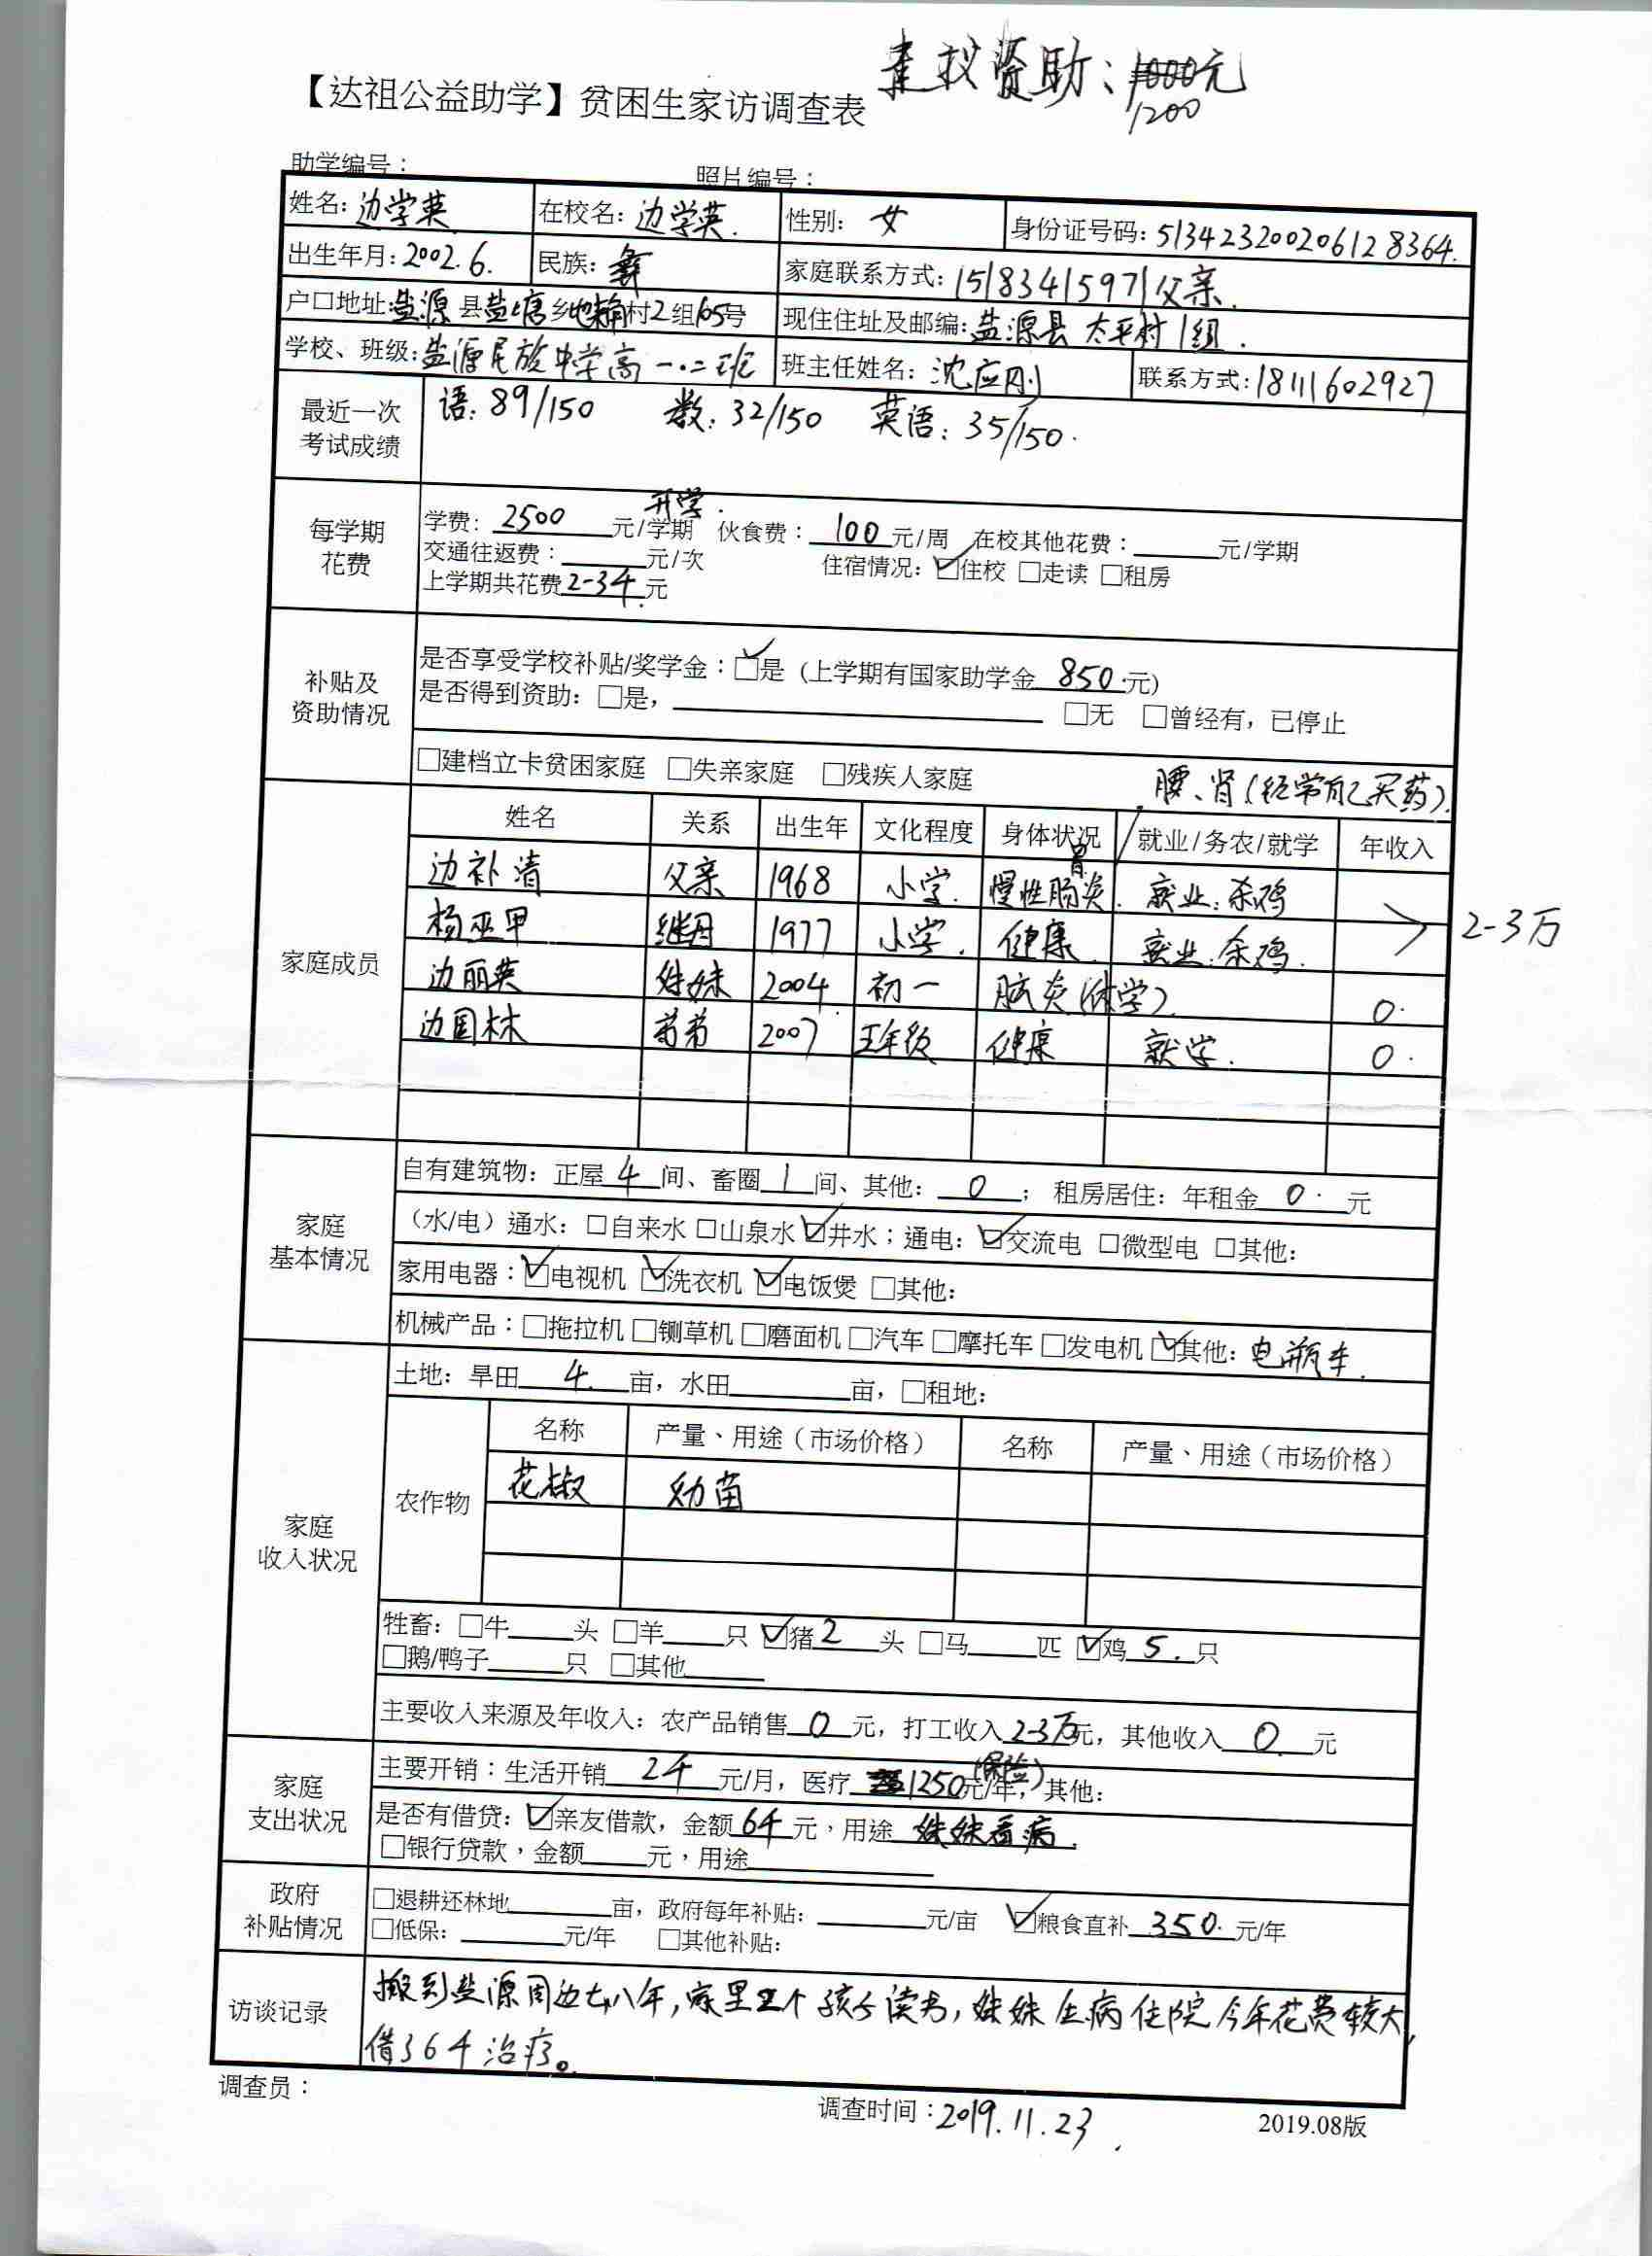 建议资助：1000元
1200
【达祖公益助学】贫困生家访调查表
助学编号： 照片编号：
姓名：边学英 在校名：边学英. 性别： 女 身份证号码：513423200206128364.
出生年月：2002.6. 民族：彝 家庭联系方式：15183415971父亲.
户口地址：盐源县盐塘乡 村2组105号 现住住址及邮编：盐源县 太平村1组.
学校、班级：盐源民族中学高一.二班 班主任姓名：沈应刚 联系方式：18111602927
最近一次考试成绩 语：89/150 数：32/150 英语：35/150.
每学期花费 开学.
学费：2500元/学期 伙食费：100元/周 在校其他花费：____元/学期
交通往返费：____元/次 住宿情况：☑住校 □走读 □租房
上学期共花费2-3千.元
补贴及资助情况 是否享受学校补贴/奖学金：☑是（上学期有国家助学金 850.元）
是否得到资助：□是，____ □无 □曾经有，已停止
□建档立卡贫困家庭 □失亲家庭 □残疾人家庭
腰、肾（经常自己买药）.
家庭成员 姓名 关系 出生年 文化程度 身体状况 就业/务农/就学 年收入
边补清 父亲 1968 小学. 慢性肠胃炎. 就业：杀鸡
杨巫甲 继母 1977 小学. 健康. 就业：杀鸡. 2-3万
边丽英 姊妹 2004 初一 脑炎（休学）. 0.
边国林 弟弟 2007 五年级 健康 就学. 0.
家庭基本情况 自有建筑物：正屋4间、畜圈1间、其他：0； 租房居住：年租金0.元
（水/电）通水：□自来水 □山泉水 ☑井水；通电：☑交流电 □微型电 □其他：
家用电器：☑电视机 ☑洗衣机 ☑电饭煲 □其他：
机械产品：□拖拉机 □铡草机 □磨面机 □汽车 □摩托车 □发电机 ☑其他：电瓶车.
家庭收入状况 土地：旱田4.亩，水田____亩，□租地：
农作物 名称 产量、用途（市场价格） 名称 产量、用途（市场价格）
花椒 幼苗
牲畜：□牛____头 □羊____只 ☑猪2头 □马____匹 ☑鸡5.只
□鹅/鸭子____只 □其他____
主要收入来源及年收入：农产品销售0元，打工收入2-3万元，其他收入0.元
家庭支出状况 主要开销：生活开销2千元/月，医疗1250元/年（保险），其他：
是否有借贷：☑亲友借款，金额6千元，用途 妹妹看病.
□银行贷款，金额____元，用途____
政府补贴情况 □退耕还林地____亩，政府每年补贴：____元/亩 ☑粮食直补350.元/年
□低保：____元/年 □其他补贴：
访谈记录 搬到盐源周边七八年，家里三个孩子读书，妹妹生病住院今年花费较大，
借了6千治疗。
调查员： 调查时间：2019.11.23. 2019.08版